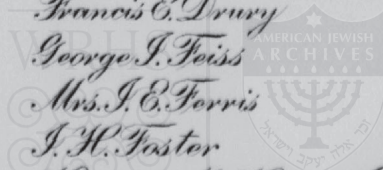 Francis E. Drury
George J. Feiss
Mrs. J. E. Ferris
J. H. Foster
AMERICAN JEWISH
ARCHIVES